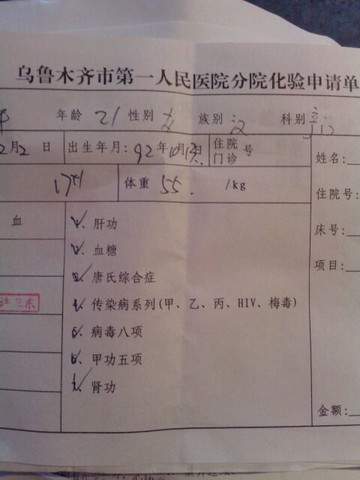 乌鲁木齐市第一人民医院分院化验申请单
年龄 21 性别 女 族别 汉 科别
2月2日 出生年月: 92年10月 日 住院门诊 号 姓名:
17 体重 55 /kg 住院号:
血 1、肝功 床号:
2、血糖 项目:
3、唐氏综合症
4、传染病系列(甲、乙、丙、HIV、梅毒)
5、病毒八项
6、甲功五项
7、肾功
金额: